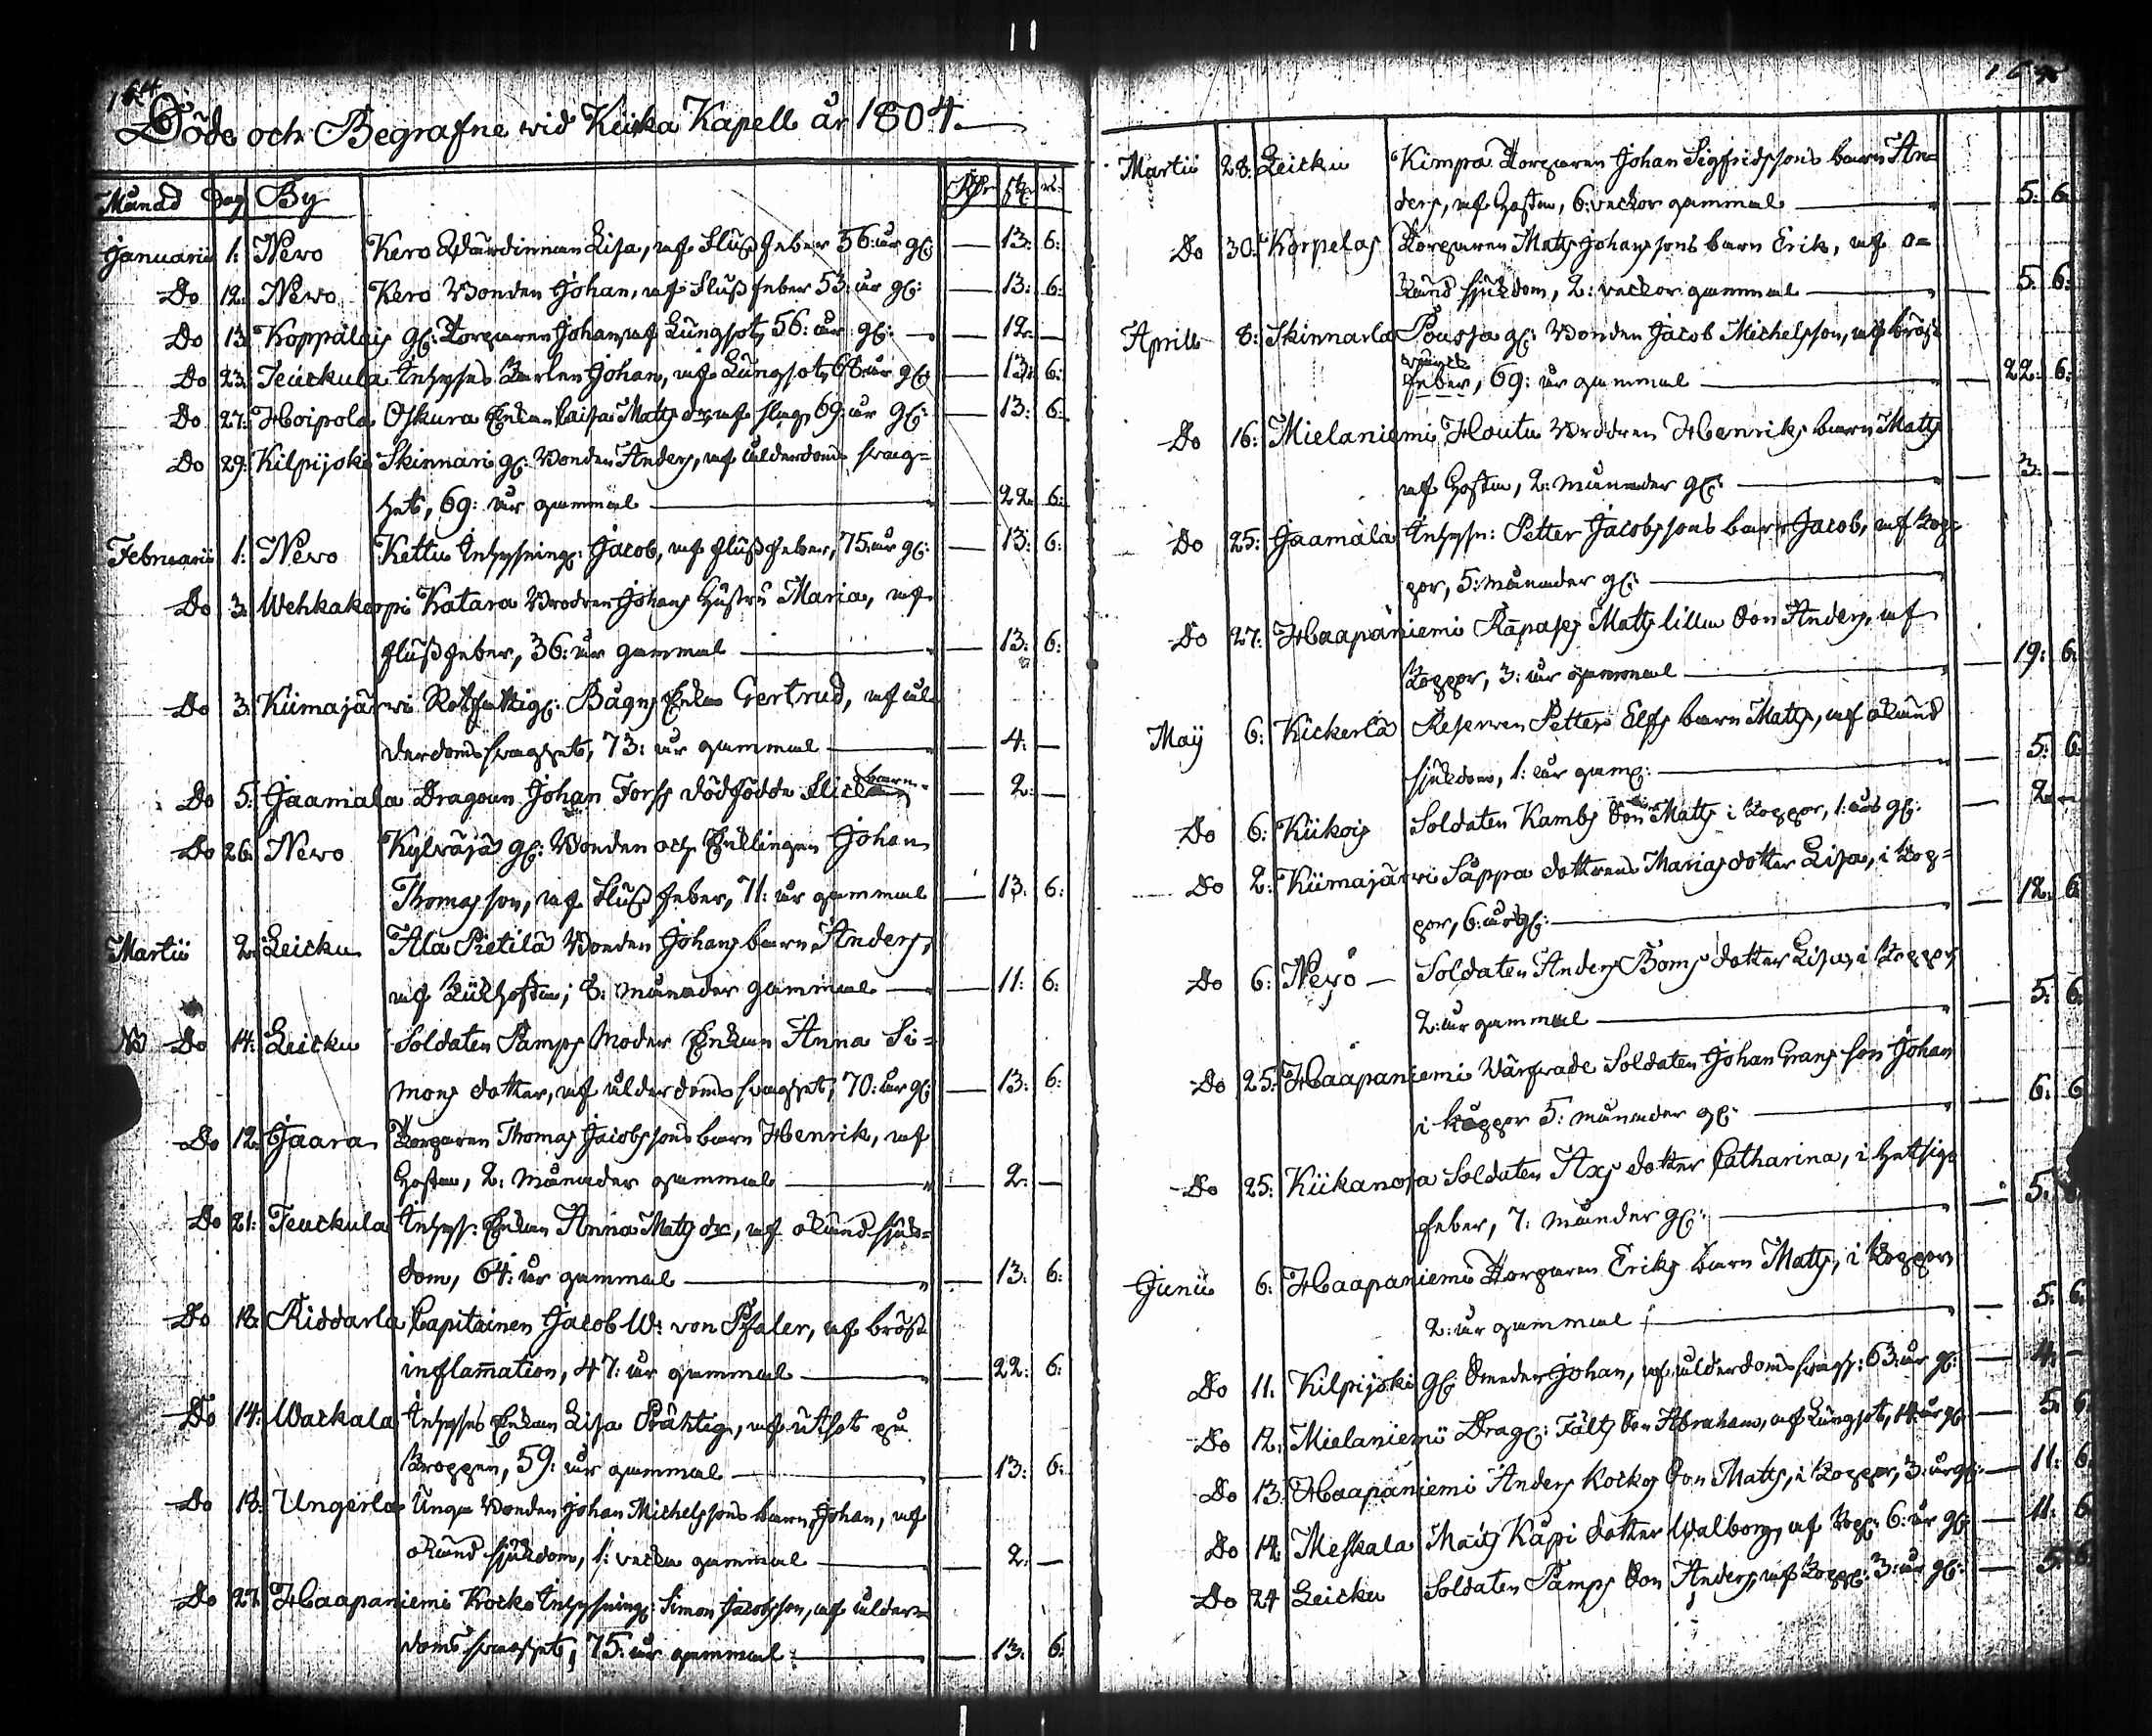 11
164
Döde och Begrafne wid Kiika Kapell år 1804.
Månad Dag By Rdr sk. r.
Januarii 1: Nevo Kero Wärdinnan Lisa, af Flussfeber 56: år gl: — 13: 6:
Do 12: Nevo Kero Bonden Johan, af Flussfeber 53: år gl: — 13: 6:
Do 13: Koppalais gl: Torparen Johan, af Lungsot, 56: år gl: — 12: —
Do 23: Teuckula Inhyses Karlen Johan, af Lungsot, 68: år gl: — 13: 6:
Do 27: Hoipola Oskura Enkan Caisa Matts dr, af slag, 69: år gl: — 13: 6:
Do 29: Kilpijoki Skinnari gl: Bonden Anders, af ålderdoms swag=
het, 69: år gammal — 22: 6:
Februarii 1: Nevo Kettu Inhysning: Jacob, af flussfeber, 75: år gl: — 13: 6:
Do 3: Wehkakorpi Katara Brodren Johans Hustru Maria, af
flussfeber, 36: år gammal — 13: 6:
Do 3: Kiimajärwi Rotfattig: Bågs Enka Gertrud, af ål=
derdoms swaghet, 73: år gammal — 4: —
Do 5: Jaamala Dragoun Johan Forss dödfödde flicke barn — 2: —
Do 26: Nevo Kylväjä gl: Bonden och Enklingen Johan
Thomasson, af Flussfeber, 71: år gammal — 13: 6:
Martii 2: Leicku Ala Pietilä Bonden Johans barn Anders,
af Kikhosta, 8: månader gammal — 11: 6:
NB Do 14: Leicku Soldaten Pamps Moder Enkan Anna Si=
mons dotter, af ålderdoms swaghet, 70: år gl: — 13: 6:
Do 12: Jaara Torparen Thomas Jacobssons barn Henrik, af
Hosta, 2: månader gammal — 2: —
Do 21: Teuckula Inhyss: Enkan Anna Matts dr, af okänd sjuk=
dom, 64: år gammal — 13: 6:
Do 18: Riddarla Capitainen Jacob W: von Pfaler, af bröst
inflam̄ation, 47: år gammal — 22: 6:
Do 14: Wackala Inhyses Enkan Lisa Präktig, af utslot på
kroppen, 59: år gammal — 13: 6:
Do 18: Ungerla Unga Bonden Johan Michelssons barn Johan, af
okänd sjukdom, 1: vecka gammal — 2: —
Do 27: Haapaniemi Krocko Inhysning: Simon Jacobsson, af ålder=
doms swaghet, 75: år gammal: — 13: 6:
Martii 28: Leicku Kimpa Torparen Johan Sigfridssons barn An=
ders, af Hosta, 6: veckor gammal — 5: 6:
Do 30: Korpelas Torparen Matts Johanssons barn Erik, af o=
känd sjukdom, 2: veckor gammal — 5: 6:
Aprill 8: Skinnarla Poussa gl: Bonden Jacob Michelsson, af bröst
feber, 69: år gammal — 22: 6:
Do 16: Mielaniemi Houtu Brodren Henriks barn Matts
af Hosta, 2: månader gl: — 3: —
Do 25: Jaamala Inhyss: Petter Jacobssons barn Jacob, af kop=
por, 5: månader gl: —
Do 27: Haapaniemi Räpases Matts lilla Son Anders, af
koppor, 3: år gammal — 19: 6:
Maÿ 6: Kickerlä Reserven Petter Elfs barn Matts, af okänd
sjukdom, 1: år gam: — 5: 6:
Do 6: Kiikois Soldaten Kambs Son Matts i koppor, 1: år gl: — 2: —
Do 2: Kiimajärwi Säppa dottrens Marias dotter Lisa, i kop=
por, 6: år gl: — 12: 6:
Do 6: Nevo — Soldaten Anders Boms dotter Lisa, i koppor,
2: år gammal — 5: 6:
Do 25: Haapaniemi Värfvade Soldaten Johan Grans son Johan
i koppor 5: månader gl: — 6: 6
Do 25: Kiikanoja Soldaten Axs dotter Catharina, i hetsig
feber, 7: månder gl: — 5:
Junii 6: Haapaniemi Torparen Eriks barn Matts, i koppor,
2: år gammal — 5: 6:
Do 11: Kilpijoki gl: Smeden Johan, af ålderdoms swagh: 63: år gl: — 4: —
Do 12: Mielaniemi Drag: Fälts Son Abraham, af Lungsot, 14: år gl: — 5: 6:
Do 13: Haapaniemi Anders Kockos Son Matts, i koppor, 3: år gl: — 11: 6:
Do 14: Meskala Matts Kåpi dotter Walborg, af kopp: 6: år gl: — 11: 6
Do 24 Leicku Soldaten Pamps Son Anders, af kopp: 3: år gl: — 5: 6